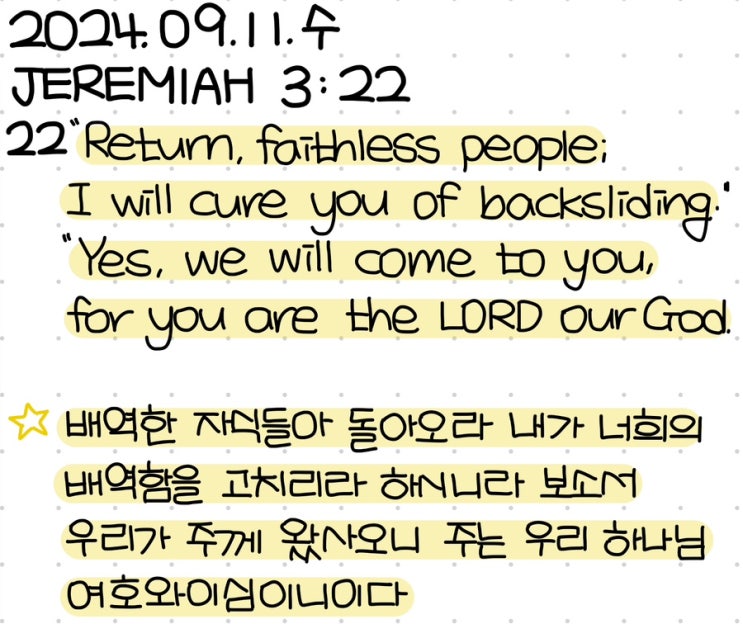 2024.09.11.수
JEREMIAH 3:22
22 "Return, faithless people;
I will cure you of backsliding."
"Yes, we will come to you,
for you are the LORD our God.
☆ 배역한 자식들아 돌아오라 내가 너희의
배역함을 고치리라 하시니라 보소서
우리가 주께 왔사오니 주는 우리 하나님
여호와이심이니이다